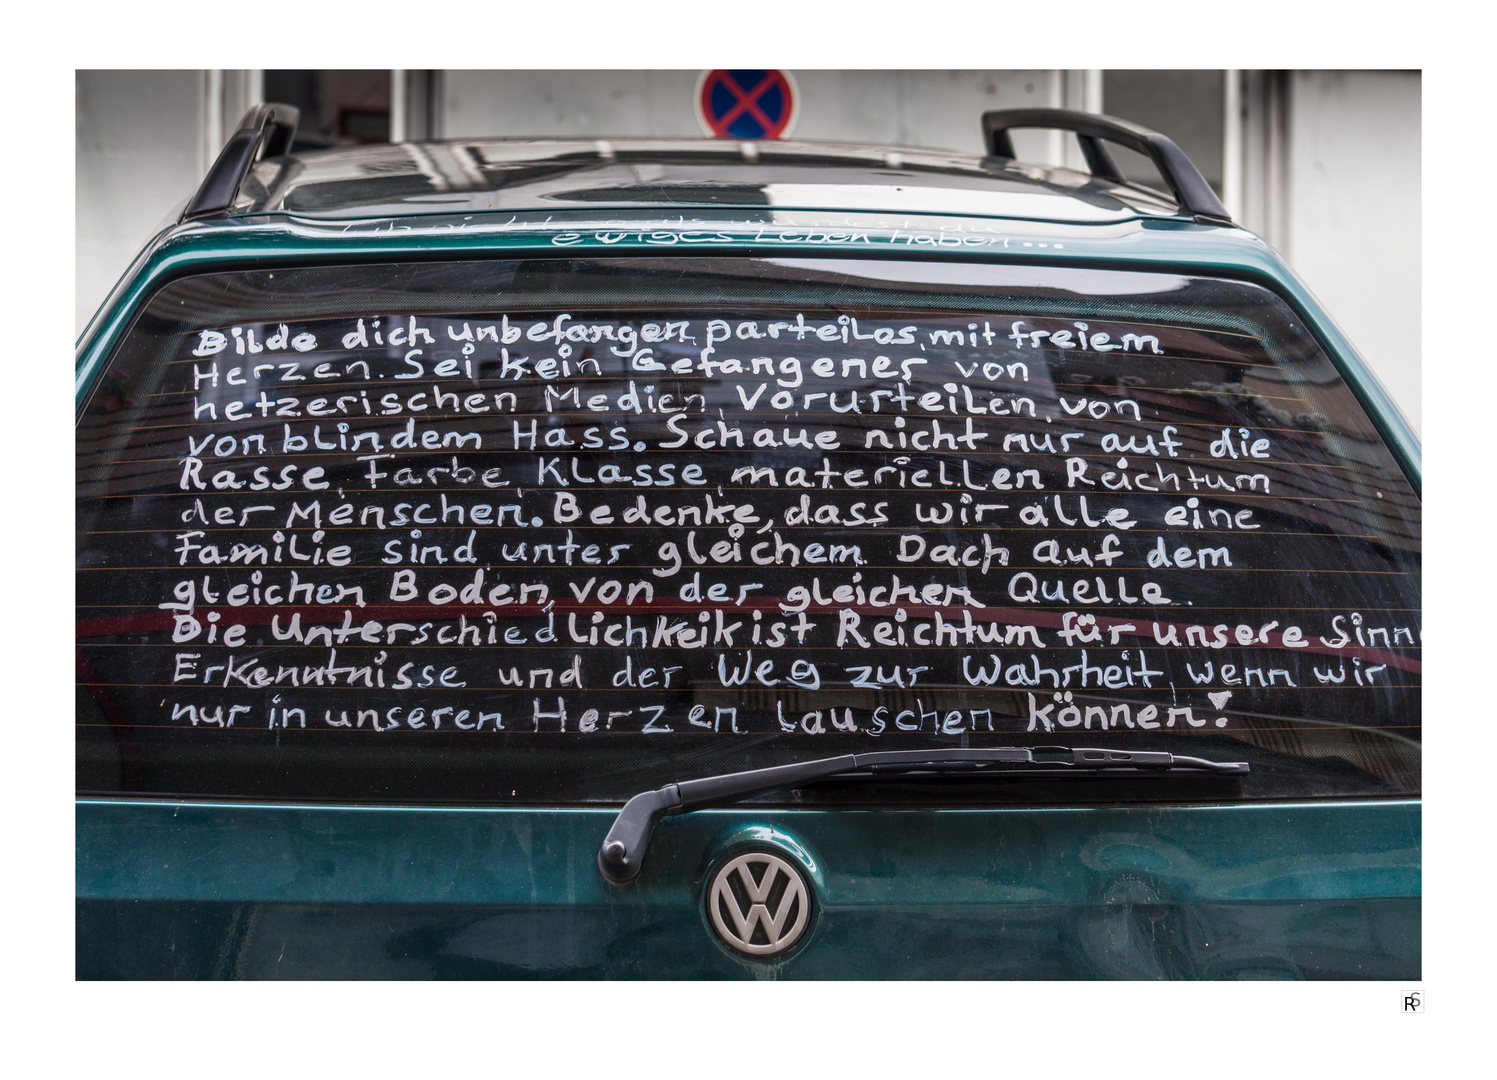 ewiges Leben haben...
Bilde dich unbefangen, parteilos, mit freiem
Herzen. Sei kein Gefangener von
hetzerischen Medien, Vorurteilen, von
von blindem Hass. Schaue nicht nur auf die
Rasse, Farbe, Klasse, materiellen Reichtum
der Menschen. Bedenke, dass wir alle eine
Familie sind, unter gleichem Dach auf dem
gleichen Boden, von der gleichen Quelle.
Die Unterschiedlichkeik ist Reichtum für unsere Sinn
Erkenntnisse und der Weg zur Wahrheit, wenn wir
nur in unseren Herzen lauschen können!
VW
RS